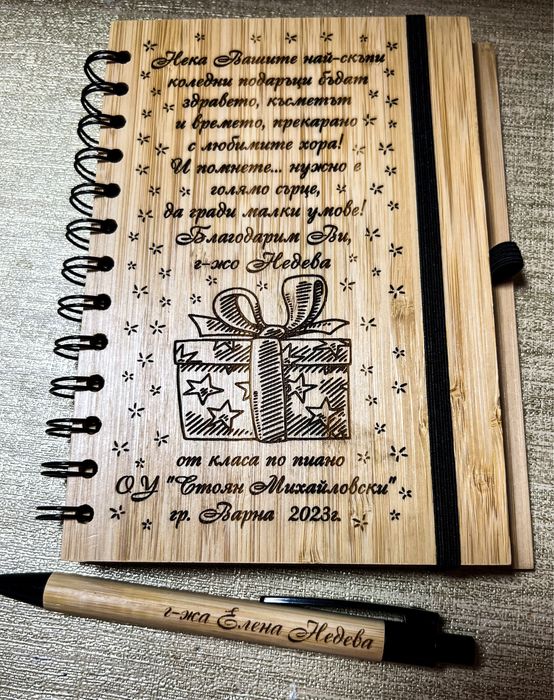 Нека Вашите най-скъпи
коледни подаръци бъдат
здравето, късметът
и времето, прекарано
с любимите хора!
И помнете... нужно е
голямо сърце,
да гради малки умове!
Благодарим Ви,
г-жо Недева
от класа по пиано
ОУ "Стоян Михайловски"
гр. Варна 2023г.
г-жа Елена Недева